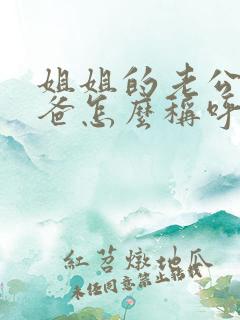 姐姐的老公
爸怎麼稱呼
紅苕燉地瓜
未经同意禁止转载